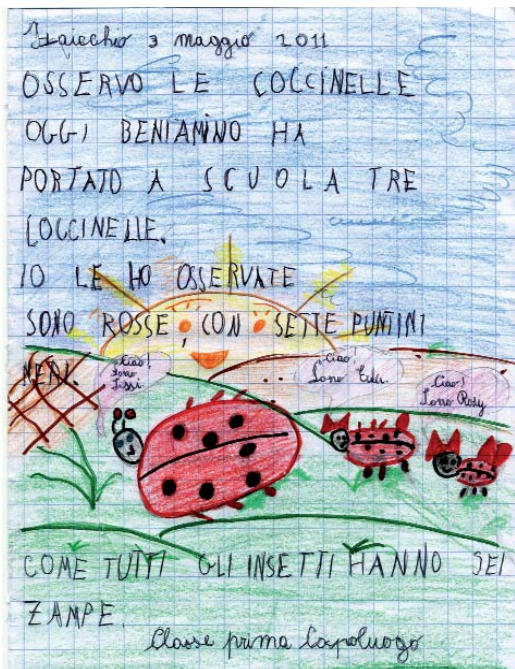 Faicchio 3 maggio 2011
OSSERVO LE COCCINELLE
OGGI BENIAMINO HA
PORTATO A SCUOLA TRE
COCCINELLE.
IO LE HO OSSERVATE
SONO ROSSE, CON SETTE PUNTINI
NERI.
Ciao!
Sono
Sissi
Ciao!
Sono
Ciao!
Sono Rosy
COME TUTTI GLI INSETTI HANNO SEI
ZAMPE.
Classe prima Capoluogo